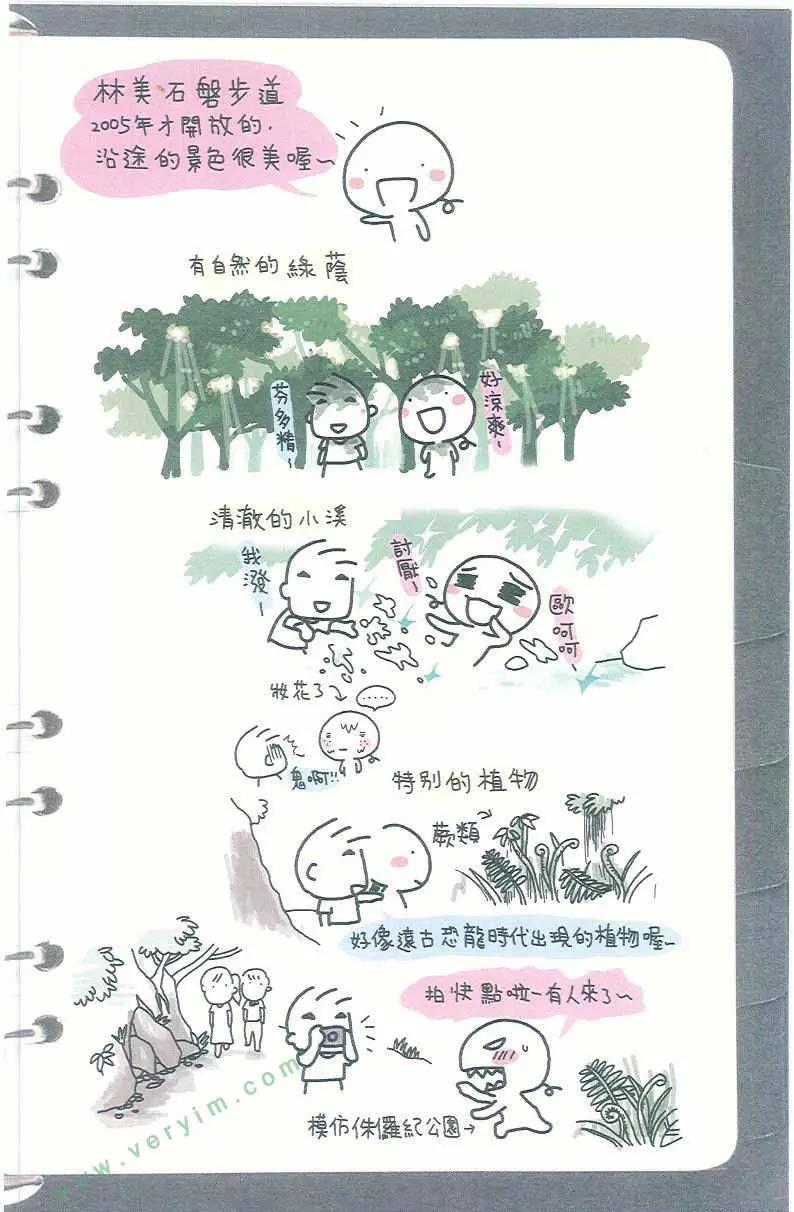 林美石磐步道
2005年才開放的.
沿途的景色很美喔~
有自然的綠蔭
芬多精~
好涼爽~
清澈的小溪
我潑~
討厭~
歐呵呵~
妝花了
.....
鬼啊!!
特別的植物
蕨類
好像遠古恐龍時代出現的植物喔~
拍快點啦~有人來了~
模仿侏儸紀公園→
www.veryim.com